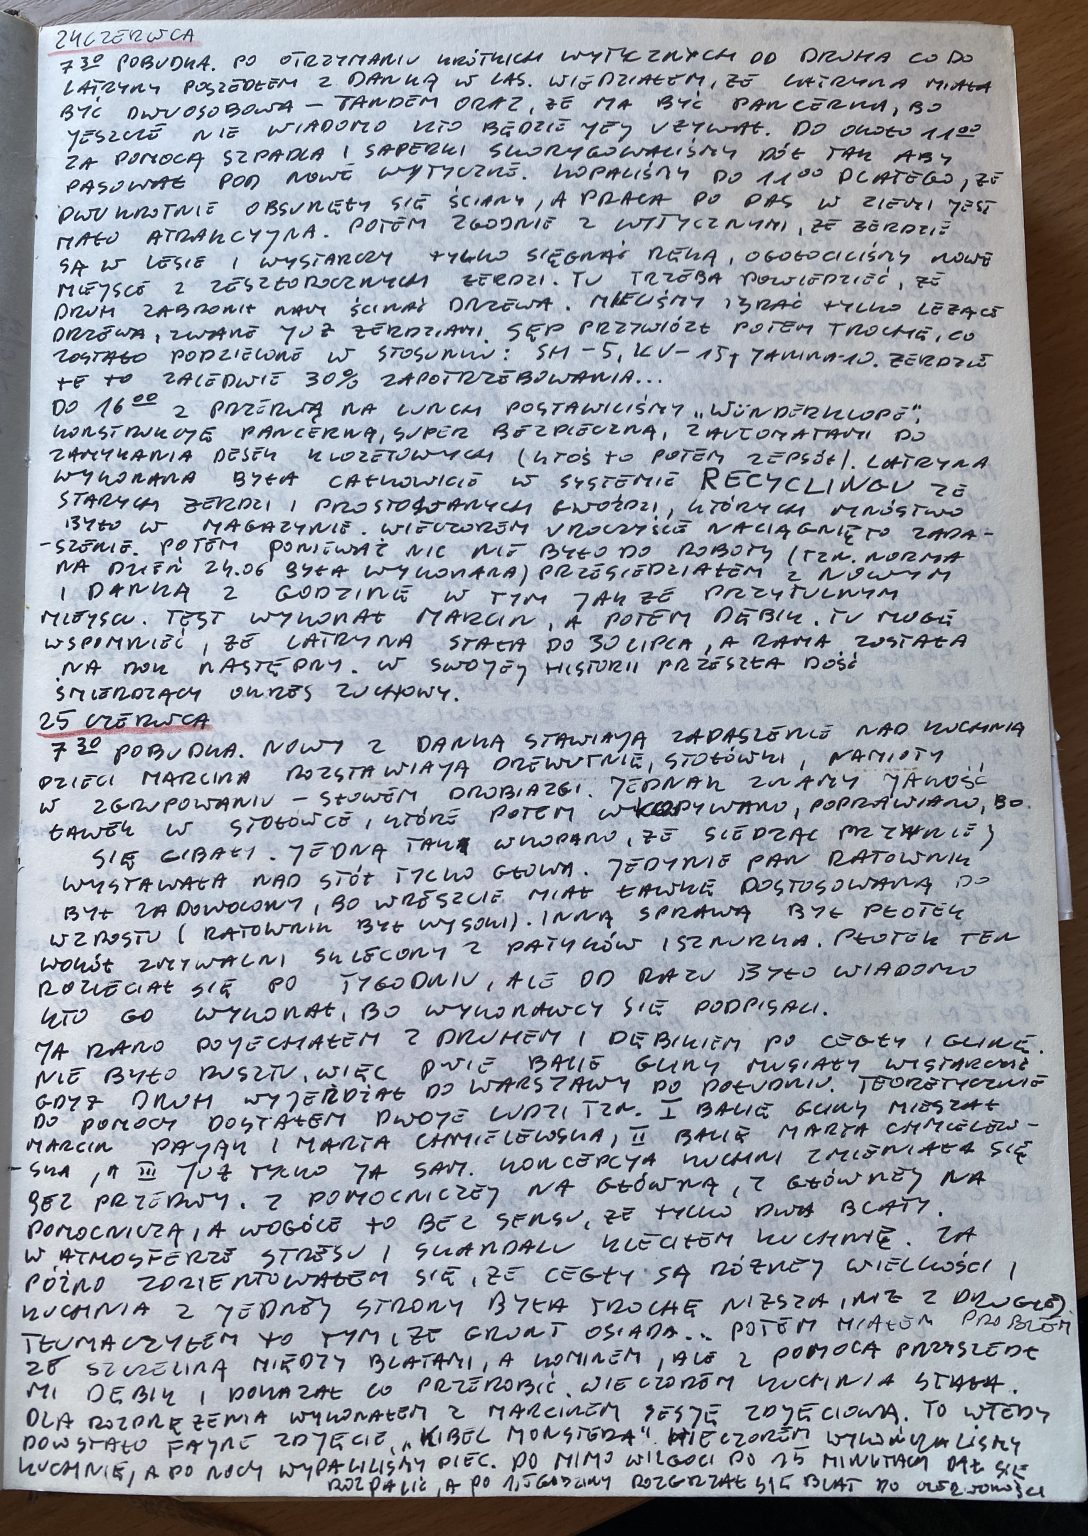 24 CZERWCA
7³⁰ POBUDKA. PO OTRZYMANIU KRÓTKICH WYTYCZNYCH OD DRUHA CO DO
LATRYNY POSZEDŁEM Z DANKĄ W LAS. WIEDZIAŁEM, ŻE LATRYNA MIAŁA
BYĆ DWUOSOBOWA – TANDEM ORAZ, ŻE MA BYĆ PANCERNA, BO
JESZCZE NIE WIADOMO KTO BĘDZIE JEJ UŻYWAŁ. DO OKOŁO 11⁰⁰
ZA POMOCĄ SZPADLA I SAPERKI SKORYGOWALIŚMY DÓŁ TAK ABY
PASOWAŁ POD NOWE WYTYCZNE. KOPALIŚMY DO 11⁰⁰ DLATEGO, ŻE
DWUKROTNIE OBSUNĘŁY SIĘ ŚCIANY, A PRACA PO PAS W ZIEMI JEST
MAŁO ATRAKCYJNA. POTEM ZGODNIE Z WYTYCZNYMI, ŻE ŻERDZIE
SĄ W LESIE I WYSTARCZY TYLKO SIĘGNĄĆ RĘKĄ, OGOŁOCILIŚMY NOWE
MIEJSCE Z ZESZŁOROCZNYCH ŻERDZI. TU TRZEBA POWIEDZIEĆ, ŻE
DRUH ZABRONIŁ NAM ŚCINAĆ DRZEWA. MIELIŚMY BRAĆ TYLKO LEŻĄCE
DRZEWA, ZWANE JUŻ ŻERDZIAMI. SĘP PRZYWIÓZŁ POTEM TROCHĘ, CO
ZOSTAŁO PODZIELONE W STOSUNKU: SH – 5, KV – 15, JANINA – 10. ŻERDZIE
TE TO ZALEDWIE 30% ZAPOTRZEBOWANIA...
DO 16⁰⁰ Z PRZERWĄ NA LUNCH POSTAWILIŚMY „WUNDERKLOPE",
KONSTRUKCJĘ PANCERNĄ, SUPER BEZPIECZNĄ, Z AUTOMATAMI DO
ZAMYKANIA DESEK KLOZETOWYCH (KTOŚ TO POTEM ZEPSÓŁ). LATRYNA
WYKONANA BYŁA CAŁKOWICIE W SYSTEMIE RECYCLINGU ZE
STARYCH ŻERDZI I PROSTOWANYCH GWOŹDZI, KTÓRYCH MNÓSTWO
BYŁO W MAGAZYNIE. WIECZOREM UROCZYŚCIE NACIĄGNIĘTO ZADA-
-SZENIE. POTEM PONIEWAŻ NIC NIE BYŁO DO ROBOTY (TZN. NORMA
NA DZIEŃ 24.06 BYŁA WYKONANA) PRZESIEDZIAŁEM Z NOWYM
I DANKĄ Z GODZINĘ W TYM JAKŻE PRZYTULNYM
MIEJSCU. TEST WYKONAŁ MARCIN, A POTEM DĘBIK. TU MOGĘ
WSPOMNIEĆ, ŻE LATRYNA STAŁA DO 30 LIPCA, A RAMA ZOSTAŁA
NA ROK NASTĘPNY. W SWOJEJ HISTORII PRZESZŁA DOŚĆ
ŚMIERDZĄCY OKRES ZUCHOWY.
25 CZERWCA
7³⁰ POBUDKA. NOWY Z DANKĄ STAWIAJĄ ZADASZENIE NAD KUCHNIĄ
DZIECI MARCINA ROZSTAWIAJĄ DREWUTNIE, STOŁÓWKI, NAMIOTY
W ZGRUPOWANIU – SŁOWEM DROBIAZGI. JEDNAK ZNAMY JAKOŚĆ
ŁAWEK W STOŁÓWCE, KTÓRE POTEM WKOPYWANO, POPRAWIANO, BO
SIĘ GIBAŁY. JEDNĄ TAK WKOPANO, ŻE SIEDZĄC PRZY NIEJ
WYSTAWAŁA NAD STÓŁ TYLKO GŁOWA. JEDYNIE PAN RATOWNIK
BYŁ ZADOWOLONY, BO WRESZCIE MIAŁ ŁAWKĘ DOSTOSOWANĄ DO
WZROSTU (RATOWNIK BYŁ WYSOKI). INNĄ SPRAWĄ BYŁ PŁOTEK
WOKÓŁ ZMYWALNI SKLECONY Z PATYKÓW I SZNURKA. PŁOTEK TEN
ROZLECIAŁ SIĘ PO TYGODNIU, ALE OD RAZU BYŁO WIADOMO
KTO GO WYKONAŁ, BO WYKONAWCY SIĘ PODPISALI.
JA RANO POJECHAŁEM Z DRUHEM I DĘBIKIEM PO CEGŁY I GLINĘ.
NIE BYŁO RUSZTU, WIĘC DWIE BALIE GLINY MUSIAŁY WYSTARCZYĆ
GDYŻ DRUH WYJEŻDŻAŁ DO WARSZAWY PO POŁUDNIU. TEORETYCZNIE
DO POMOCY DOSTAŁEM DWOJE LUDZI TZN. I BALIĘ GLINY MIESZAŁ
MARCIN PAJĄK I MARTA CHMIELEWSKA, II BALIĘ MARTA CHMIELEW-
-SKA, A III JUŻ TYLKO JA SAM. KONCEPCJA KUCHNI ZMIENIAŁA SIĘ
BEZ PRZERWY. Z POMOCNICZEJ NA GŁÓWNĄ, Z GŁÓWNEJ NA
POMOCNICZĄ, A WOGÓLE TO BEZ SENSU, ŻE TYLKO DWA BLATY.
W ATMOSFERZE STRESU I SKANDALU KLECIŁEM KUCHNIĘ. ZA
PÓŹNO ZORIENTOWAŁEM SIĘ, ŻE CEGŁY SĄ RÓŻNEJ WIELKOŚCI I
KUCHNIA Z JEDNEJ STRONY BYŁA TROCHĘ NIŻSZA, NIŻ Z DRUGIEJ.
TŁUMACZYŁEM TO TYM, ŻE GRUNT OSIADA... POTEM MIAŁEM PROBLEM
ZE SZCZELINĄ MIĘDZY BLATAMI, A KOMINEM, ALE Z POMOCĄ PRZYSZEDŁ
MI DĘBIK I POKAZAŁ CO PRZEROBIĆ. WIECZOREM KUCHNIA STAŁA.
DLA ROZPRĘŻENIA WYKONAŁEM Z MARCINEM SESJĘ ZDJĘCIOWĄ. TO WTEDY
POWSTAŁO FAJNE ZDJĘCIE „KIBEL MONSTERA". WIECZOREM WYKOŃCZALIŚMY
KUCHNIĘ, A PO NOCY WYPALILIŚMY PIEC. PO MIMO WILGOCI PO 15 MINUTACH DAŁ SIĘ
ROZPALIĆ, A PO 1,5 GODZINY ROZGRZAŁ SIĘ BLAT DO CZERWONOŚCI